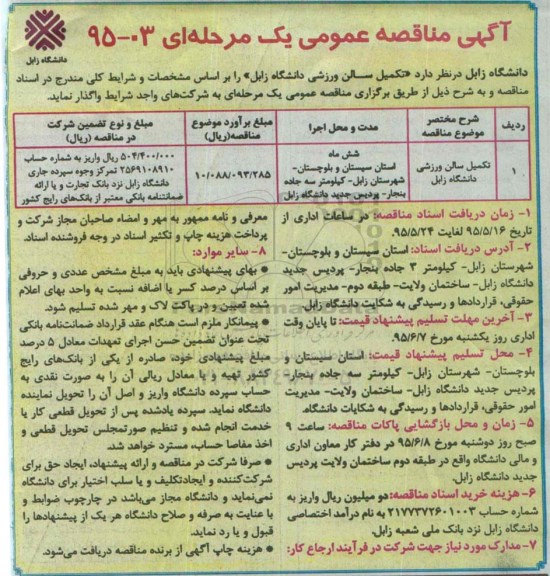 آگهی مناقصه عمومی یک مرحله‌ای ۰۳-۹۵
دانشگاه زابل
دانشگاه زابل درنظر دارد «تکمیل سالن ورزشی دانشگاه زابل» را بر اساس مشخصات و شرایط کلی مندرج در اسناد
مناقصه و به شرح ذیل از طریق برگزاری مناقصه عمومی یک مرحله‌ای به شرکت‌های واجد شرایط واگذار نماید.
ردیف
شرح مختصر
موضوع مناقصه
مدت و محل اجرا
مبلغ برآورد موضوع
مناقصه(ریال)
مبلغ و نوع تضمین شرکت
در مناقصه (ریال)
۱
تکمیل سالن ورزشی
دانشگاه زابل
شش ماه
استان سیستان و بلوچستان-
شهرستان زابل- کیلومتر سه جاده
بنجار- پردیس جدید دانشگاه زابل
۱۰/۰۸۸/۰۹۳/۲۸۵
۵۰۴/۴۰۰/۰۰۰ ریال واریز به شماره حساب
۲۵۶۹۱۰۸۹۱۰ تمرکز وجوه سپرده جاری
دانشگاه زابل نزد بانک تجارت و یا ارائه
ضمانتنامه بانکی معتبر از بانک‌های رایج کشور
۱- زمان دریافت اسناد مناقصه: در ساعات اداری از
تاریخ ۹۵/۵/۱۶ لغایت ۹۵/۵/۲۴.
۲- آدرس دریافت اسناد: استان سیستان و بلوچستان-
شهرستان زابل- کیلومتر ۳ جاده بنجار- پردیس جدید
دانشگاه زابل- ساختمان ولایت- طبقه دوم- مدیریت امور
حقوقی، قراردادها و رسیدگی به شکایات دانشگاه زابل
۳- آخرین مهلت تسلیم پیشنهاد قیمت: تا پایان وقت
اداری روز یکشنبه مورخ ۹۵/۶/۷.
۴- محل تسلیم پیشنهاد قیمت: استان سیستان و
بلوچستان- شهرستان زابل- کیلومتر سه جاده بنجار-
پردیس جدید دانشگاه زابل- ساختمان ولایت- مدیریت
امور حقوقی، قراردادها و رسیدگی به شکایات دانشگاه.
۵- زمان و محل بازگشایی پاکات مناقصه: ساعت ۹
صبح روز دوشنبه مورخ ۹۵/۶/۸ در دفتر کار معاون اداری
و مالی دانشگاه واقع در طبقه دوم ساختمان ولایت پردیس
جدید دانشگاه زابل.
۶- هزینه خرید اسناد مناقصه: دو میلیون ریال واریز به
شماره حساب ۲۱۷۷۳۷۲۶۰۱۰۰۳ به نام درآمد اختصاصی
دانشگاه زابل نزد بانک ملی شعبه زابل.
۷- مدارک مورد نیاز جهت شرکت در فرآیند ارجاع کار:
معرفی و نامه ممهور به مهر و امضاء صاحبان مجاز شرکت و
پرداخت هزینه چاپ و تکثیر اسناد در وجه فروشنده اسناد.
۸- سایر موارد:
● بهای پیشنهادی باید به مبلغ مشخص عددی و حروفی
بر اساس درصد کسر یا اضافه نسبت به واحد بهای اعلام
شده تعیین و در پاکت لاک و مهر شده تسلیم شود.
● پیمانکار ملزم است هنگام عقد قرارداد ضمانتنامه بانکی
تحت عنوان تضمین حسن اجرای تعهدات معادل ۵ درصد
مبلغ پیشنهادی خود، صادره از یکی از بانک‌های رایج
کشور تهیه و یا معادل ریالی آن را به صورت نقدی به
حساب سپرده دانشگاه واریز و اصل آن را تحویل نماینده
دانشگاه نماید. سپرده یادشده پس از تحویل قطعی کار یا
خدمت انجام شده و تنظیم صورتمجلس تحویل قطعی و
اخذ مفاصا حساب، مسترد خواهد شد.
● صرفا شرکت در مناقصه و ارائه پیشنهاد، ایجاد حق برای
شرکت‌کننده و ایجادتکلیف و یا سلب اختیار برای دانشگاه
نمی‌نماید و دانشگاه مجاز می‌باشد در چارچوب ضوابط و
با عنایت به صرفه و صلاح دانشگاه هر یک از پیشنهادها را
قبول و یا رد نماید.
● هزینه چاپ آگهی از برنده مناقصه دریافت می‌شود.